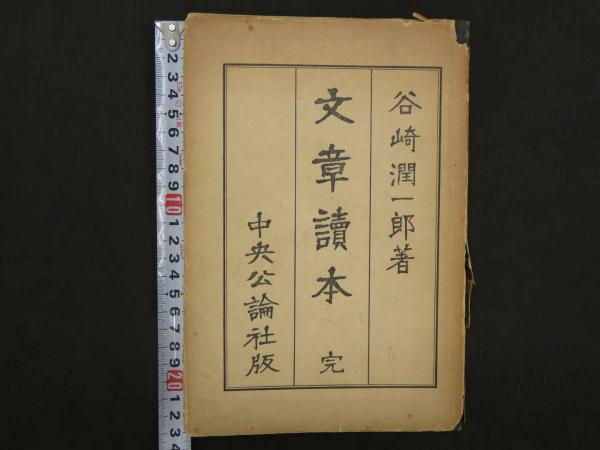 谷崎潤一郎著
文章讀本 完
中央公論社版
2
3
4
5
6
7
8
9
10
1
2
3
4
5
6
7
8
9
20
1
2
3
4